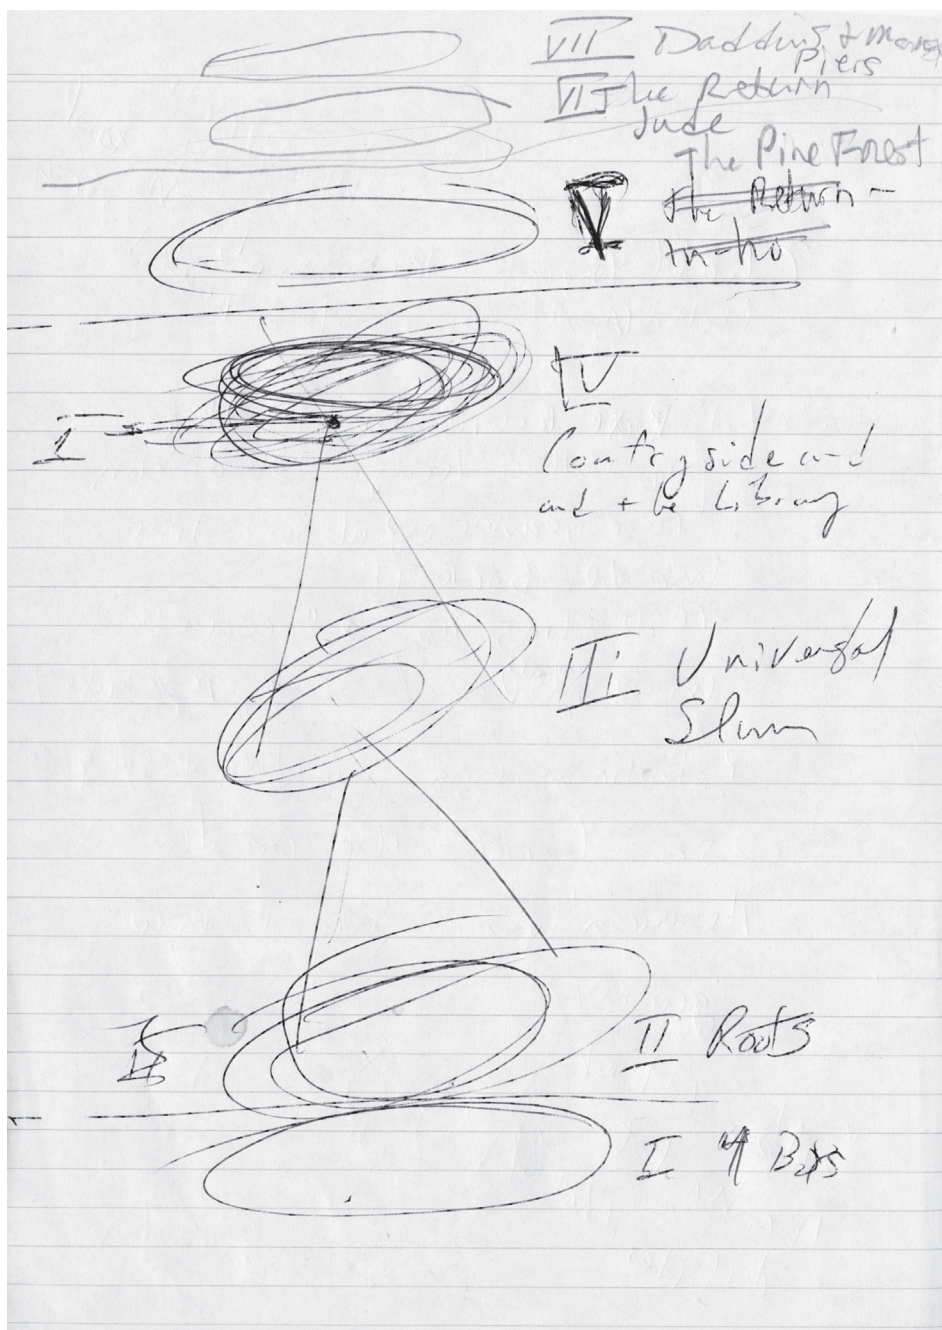 VII Dadding + Moves
Piers
VI The Return
Jude
The Pine Forest
V The Return -
IV
I
Countryside and
and the Library
III Universal
Slum
II Roots
I 4 B